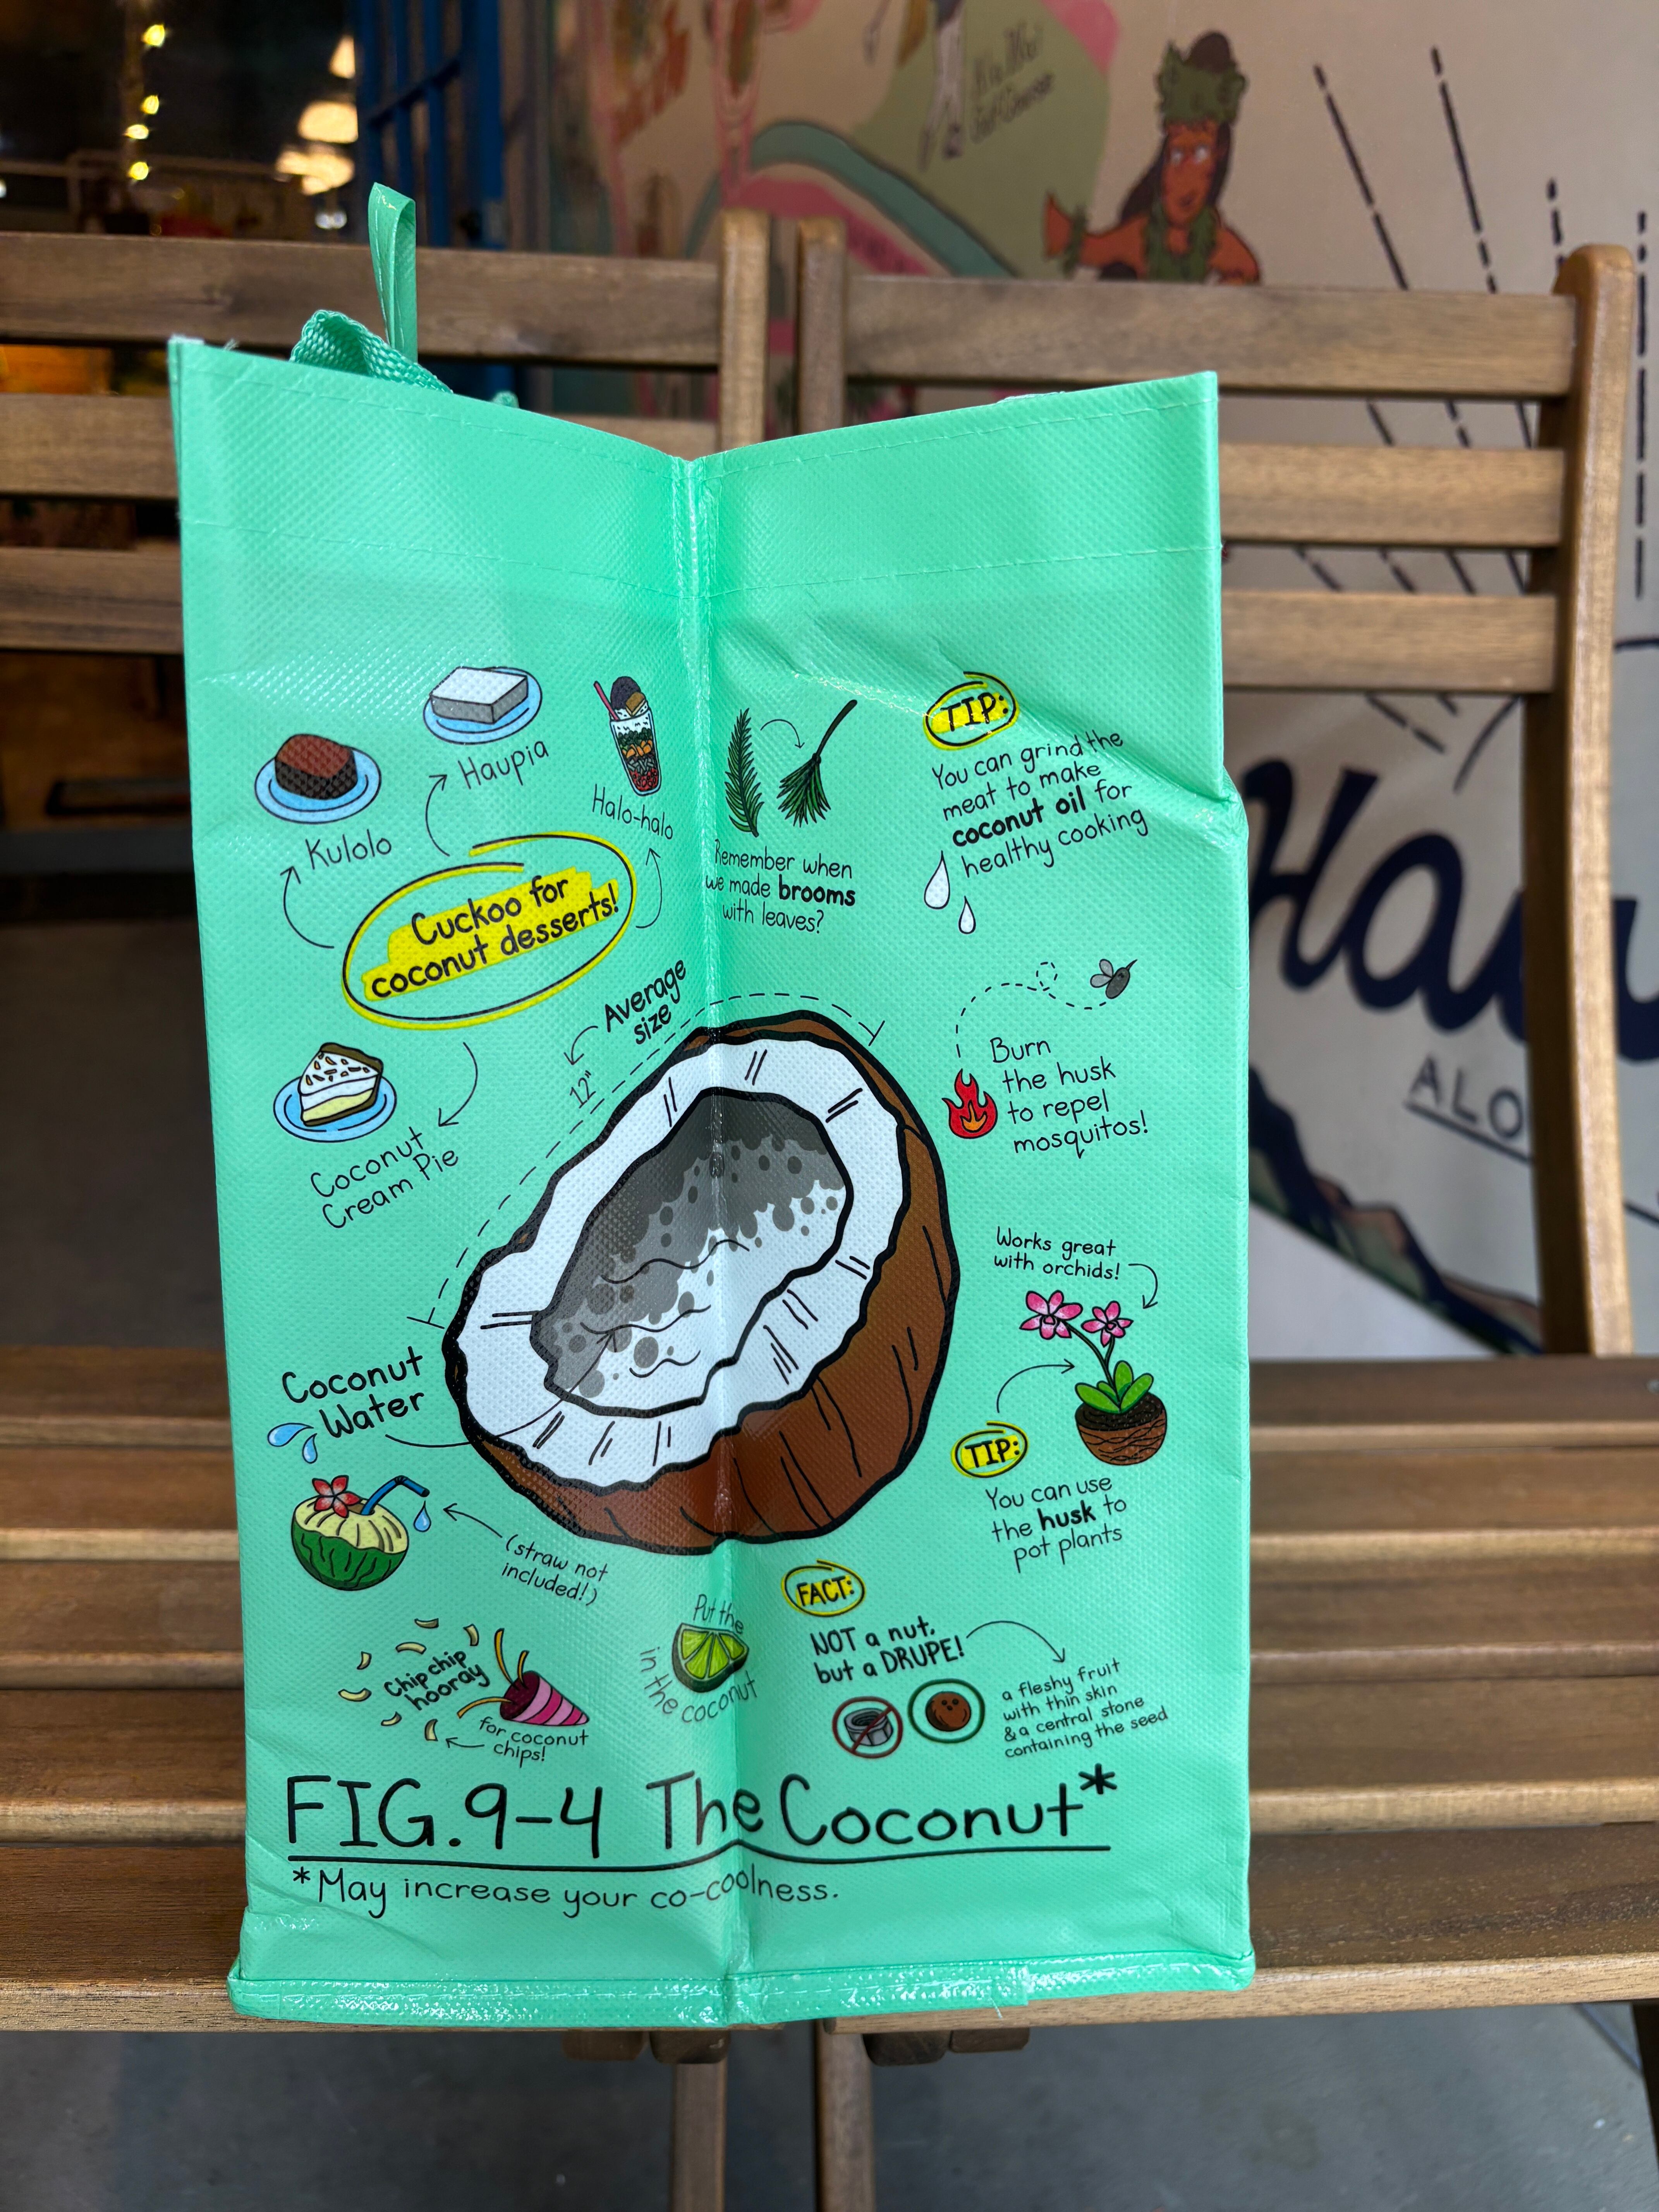 Kulolo
Haupia
Halo-halo
Cuckoo for
coconut desserts!
Coconut
Cream Pie
Remember when
we made brooms
with leaves?
TIP:
You can grind the
meat to make
coconut oil for
healthy cooking
Average
size
12"
Burn
the husk
to repel
mosquitos!
Works great
with orchids!
TIP:
You can use
the husk to
pot plants
Coconut
Water
(straw not
included!)
Chip chip
hooray
for coconut
chips!
Put the
in the coconut
FACT:
NOT a nut,
but a DRUPE!
a fleshy fruit
with thin skin
& a central stone
containing the seed
FIG.9-4 The Coconut*
*May increase your co-coolness.
Golf Course
ALO